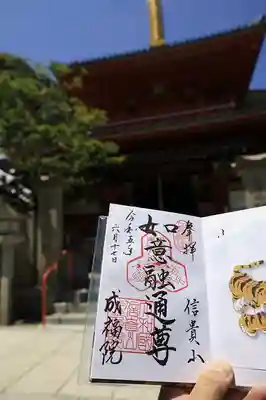 奉拝
信貴山
如意融通尊
成福院
令和五年
六月十七日